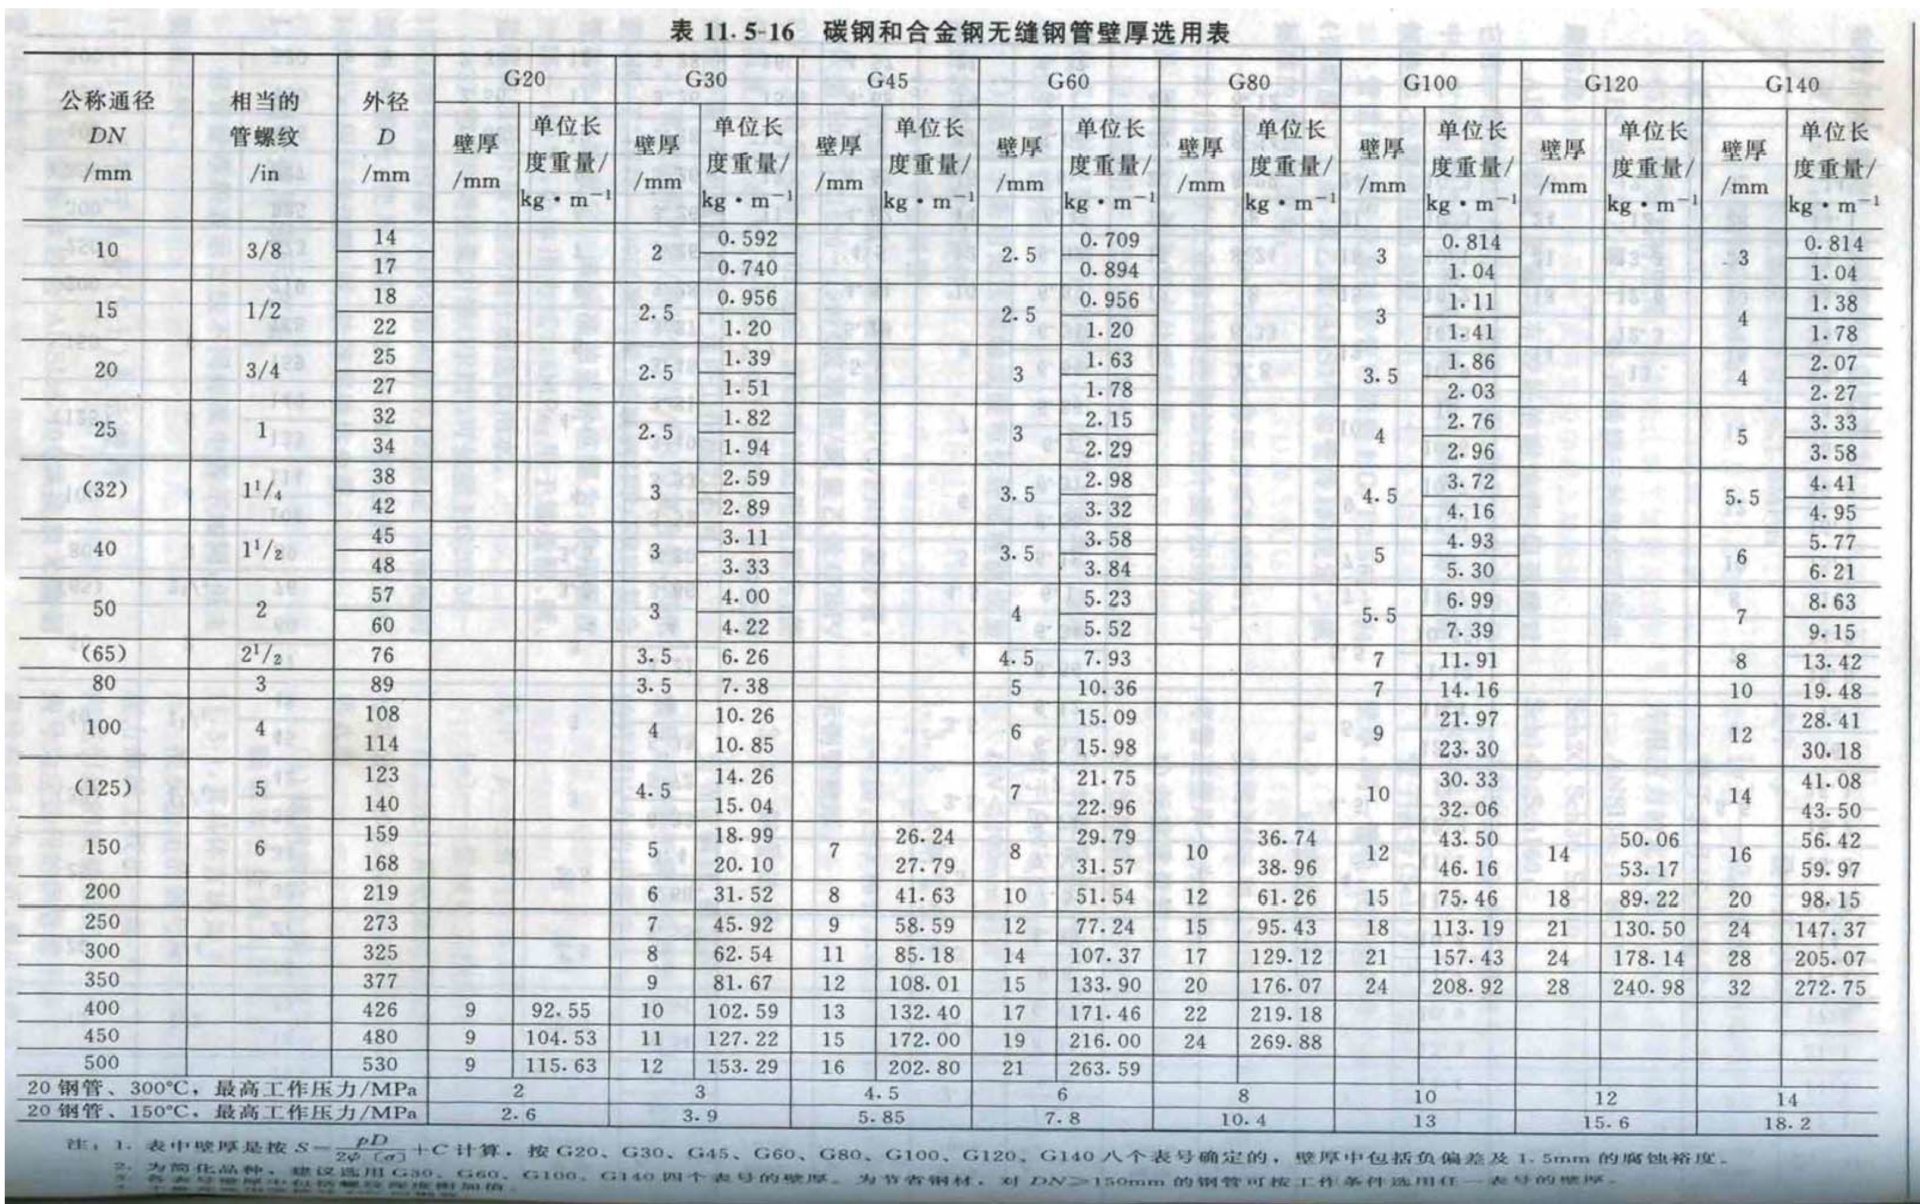 表 11.5-16 碳钢和合金钢无缝钢管壁厚选用表
公称通径 DN /mm 相当的管螺纹 /in 外径 D /mm G20 G30 G45 G60 G80 G100 G120 G140
壁厚 /mm 单位长度重量/ kg·m⁻¹ 壁厚 /mm 单位长度重量/ kg·m⁻¹ 壁厚 /mm 单位长度重量/ kg·m⁻¹ 壁厚 /mm 单位长度重量/ kg·m⁻¹ 壁厚 /mm 单位长度重量/ kg·m⁻¹ 壁厚 /mm 单位长度重量/ kg·m⁻¹ 壁厚 /mm 单位长度重量/ kg·m⁻¹ 壁厚 /mm 单位长度重量/ kg·m⁻¹
10 3/8 14 2 0.592 2.5 0.709 3 0.814 3 0.814
17 0.740 0.894 1.04 1.04
15 1/2 18 2.5 0.956 2.5 0.956 3 1.11 4 1.38
22 1.20 1.20 1.41 1.78
20 3/4 25 2.5 1.39 3 1.63 3.5 1.86 4 2.07
27 1.51 1.78 2.03 2.27
25 1 32 2.5 1.82 3 2.15 4 2.76 5 3.33
34 1.94 2.29 2.96 3.58
(32) 1¹/₄ 38 3 2.59 3.5 2.98 4.5 3.72 5.5 4.41
42 2.89 3.32 4.16 4.95
40 1¹/₂ 45 3 3.11 3.5 3.58 5 4.93 6 5.77
48 3.33 3.84 5.30 6.21
50 2 57 3 4.00 4 5.23 5.5 6.99 7 8.63
60 4.22 5.52 7.39 9.15
(65) 2¹/₂ 76 3.5 6.26 4.5 7.93 7 11.91 8 13.42
80 3 89 3.5 7.38 5 10.36 7 14.16 10 19.48
100 4 108 4 10.26 6 15.09 9 21.97 12 28.41
114 10.85 15.98 23.30 30.18
(125) 5 123 4.5 14.26 7 21.75 10 30.33 14 41.08
140 15.04 22.96 32.06 43.50
150 6 159 5 18.99 7 26.24 8 29.79 10 36.74 12 43.50 14 50.06 16 56.42
168 20.10 27.79 31.57 38.96 46.16 53.17 59.97
200 219 6 31.52 8 41.63 10 51.54 12 61.26 15 75.46 18 89.22 20 98.15
250 273 7 45.92 9 58.59 12 77.24 15 95.43 18 113.19 21 130.50 24 147.37
300 325 8 62.54 11 85.18 14 107.37 17 129.12 21 157.43 24 178.14 28 205.07
350 377 9 81.67 12 108.01 15 133.90 20 176.07 24 208.92 28 240.98 32 272.75
400 426 9 92.55 10 102.59 13 132.40 17 171.46 22 219.18
450 480 9 104.53 11 127.22 15 172.00 19 216.00 24 269.88
500 530 9 115.63 12 153.29 16 202.80 21 263.59
20 钢管、300℃，最高工作压力/MPa 2 3 4.5 6 8 10 12 14
20 钢管、150℃，最高工作压力/MPa 2.6 3.9 5.85 7.8 10.4 13 15.6 18.2
注：1. 表中壁厚是按 S=pD/2φ[σ]+C 计算，按 G20、G30、G45、G60、G80、G100、G120、G140 八个表号确定的，壁厚中包括负偏差及 1.5mm 的腐蚀裕度。
2. 为简化品种，建议选用 G30、G60、G100、G140 四个表号的壁厚。为节省钢材，对 DN≥150mm 的钢管可按工作条件选用任一表号的壁厚。
3. 各表号壁厚中包括螺纹深度附加值。